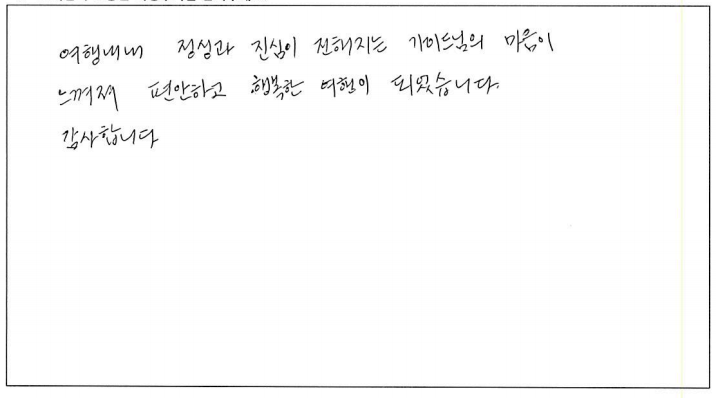 여행내내 정성과 진심이 전해지는 가이드님의 마음이
느껴져 편안하고 행복한 여행이 되었습니다.
감사합니다